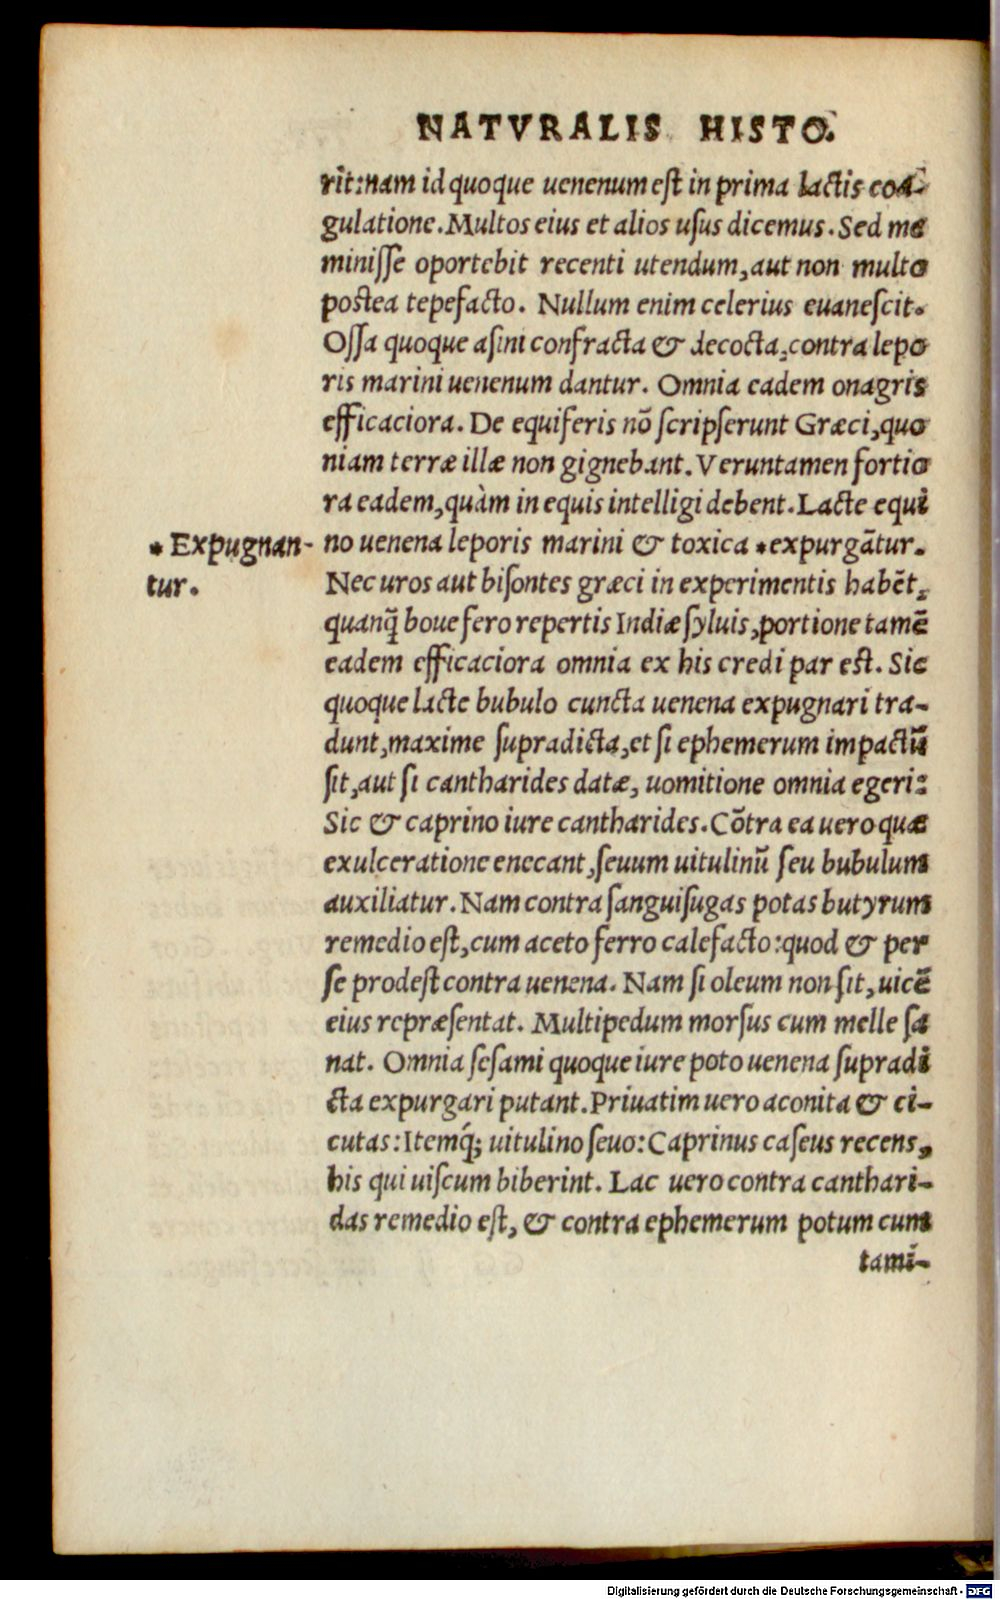 NATVRALIS HISTO.
rit: nam id quoque uenenum est in prima lactis coa-
gulatione. Multos eius et alios usus dicemus. Sed me
minisse oportebit recenti utendum, aut non multo
postea tepefacto. Nullum enim celerius euanescit.
Ossa quoque asini confracta & decocta, contra lepo
ris marini uenenum dantur. Omnia eadem onagris
efficaciora. De equiferis nō scripserunt Græci, quo
niam terræ illæ non gignebant. Veruntamen fortio
ra eadem, quàm in equis intelligi debent. Lacte equi
no uenena leporis marini & toxica *expurgātur.
* Expugnan-
tur.
Nec uros aut bisontes græci in experimentis habēt,
quanq̃ boue fero repertis Indiæ syluis, portione tamē
eadem efficaciora omnia ex his credi par est. Sic
quoque lacte bubulo cuncta uenena expugnari tra-
dunt, maxime supradicta, et si ephemerum impactū
sit, aut si cantharides datæ, uomitione omnia egeri:
Sic & caprino iure cantharides. Cōtra ea uero quæ
exulceratione enecant, seuum uitulinū seu bubulum
auxiliatur. Nam contra sanguisugas potas butyrum
remedio est, cum aceto ferro calefacto: quod & per
se prodest contra uenena. Nam si oleum non sit, uicē
eius repræsentat. Multipedum morsus cum melle sa
nat. Omnia sesami quoque iure poto uenena supradi
cta expurgari putant. Priuatim uero aconita & ci-
cutas: Itemq́; uitulino seuo: Caprinus caseus recens,
his qui uiscum biberint. Lac uero contra canthari-
das remedio est, & contra ephemerum potum cum
tami-
Digitalisierung gefördert durch die Deutsche Forschungsgemeinschaft - DFG